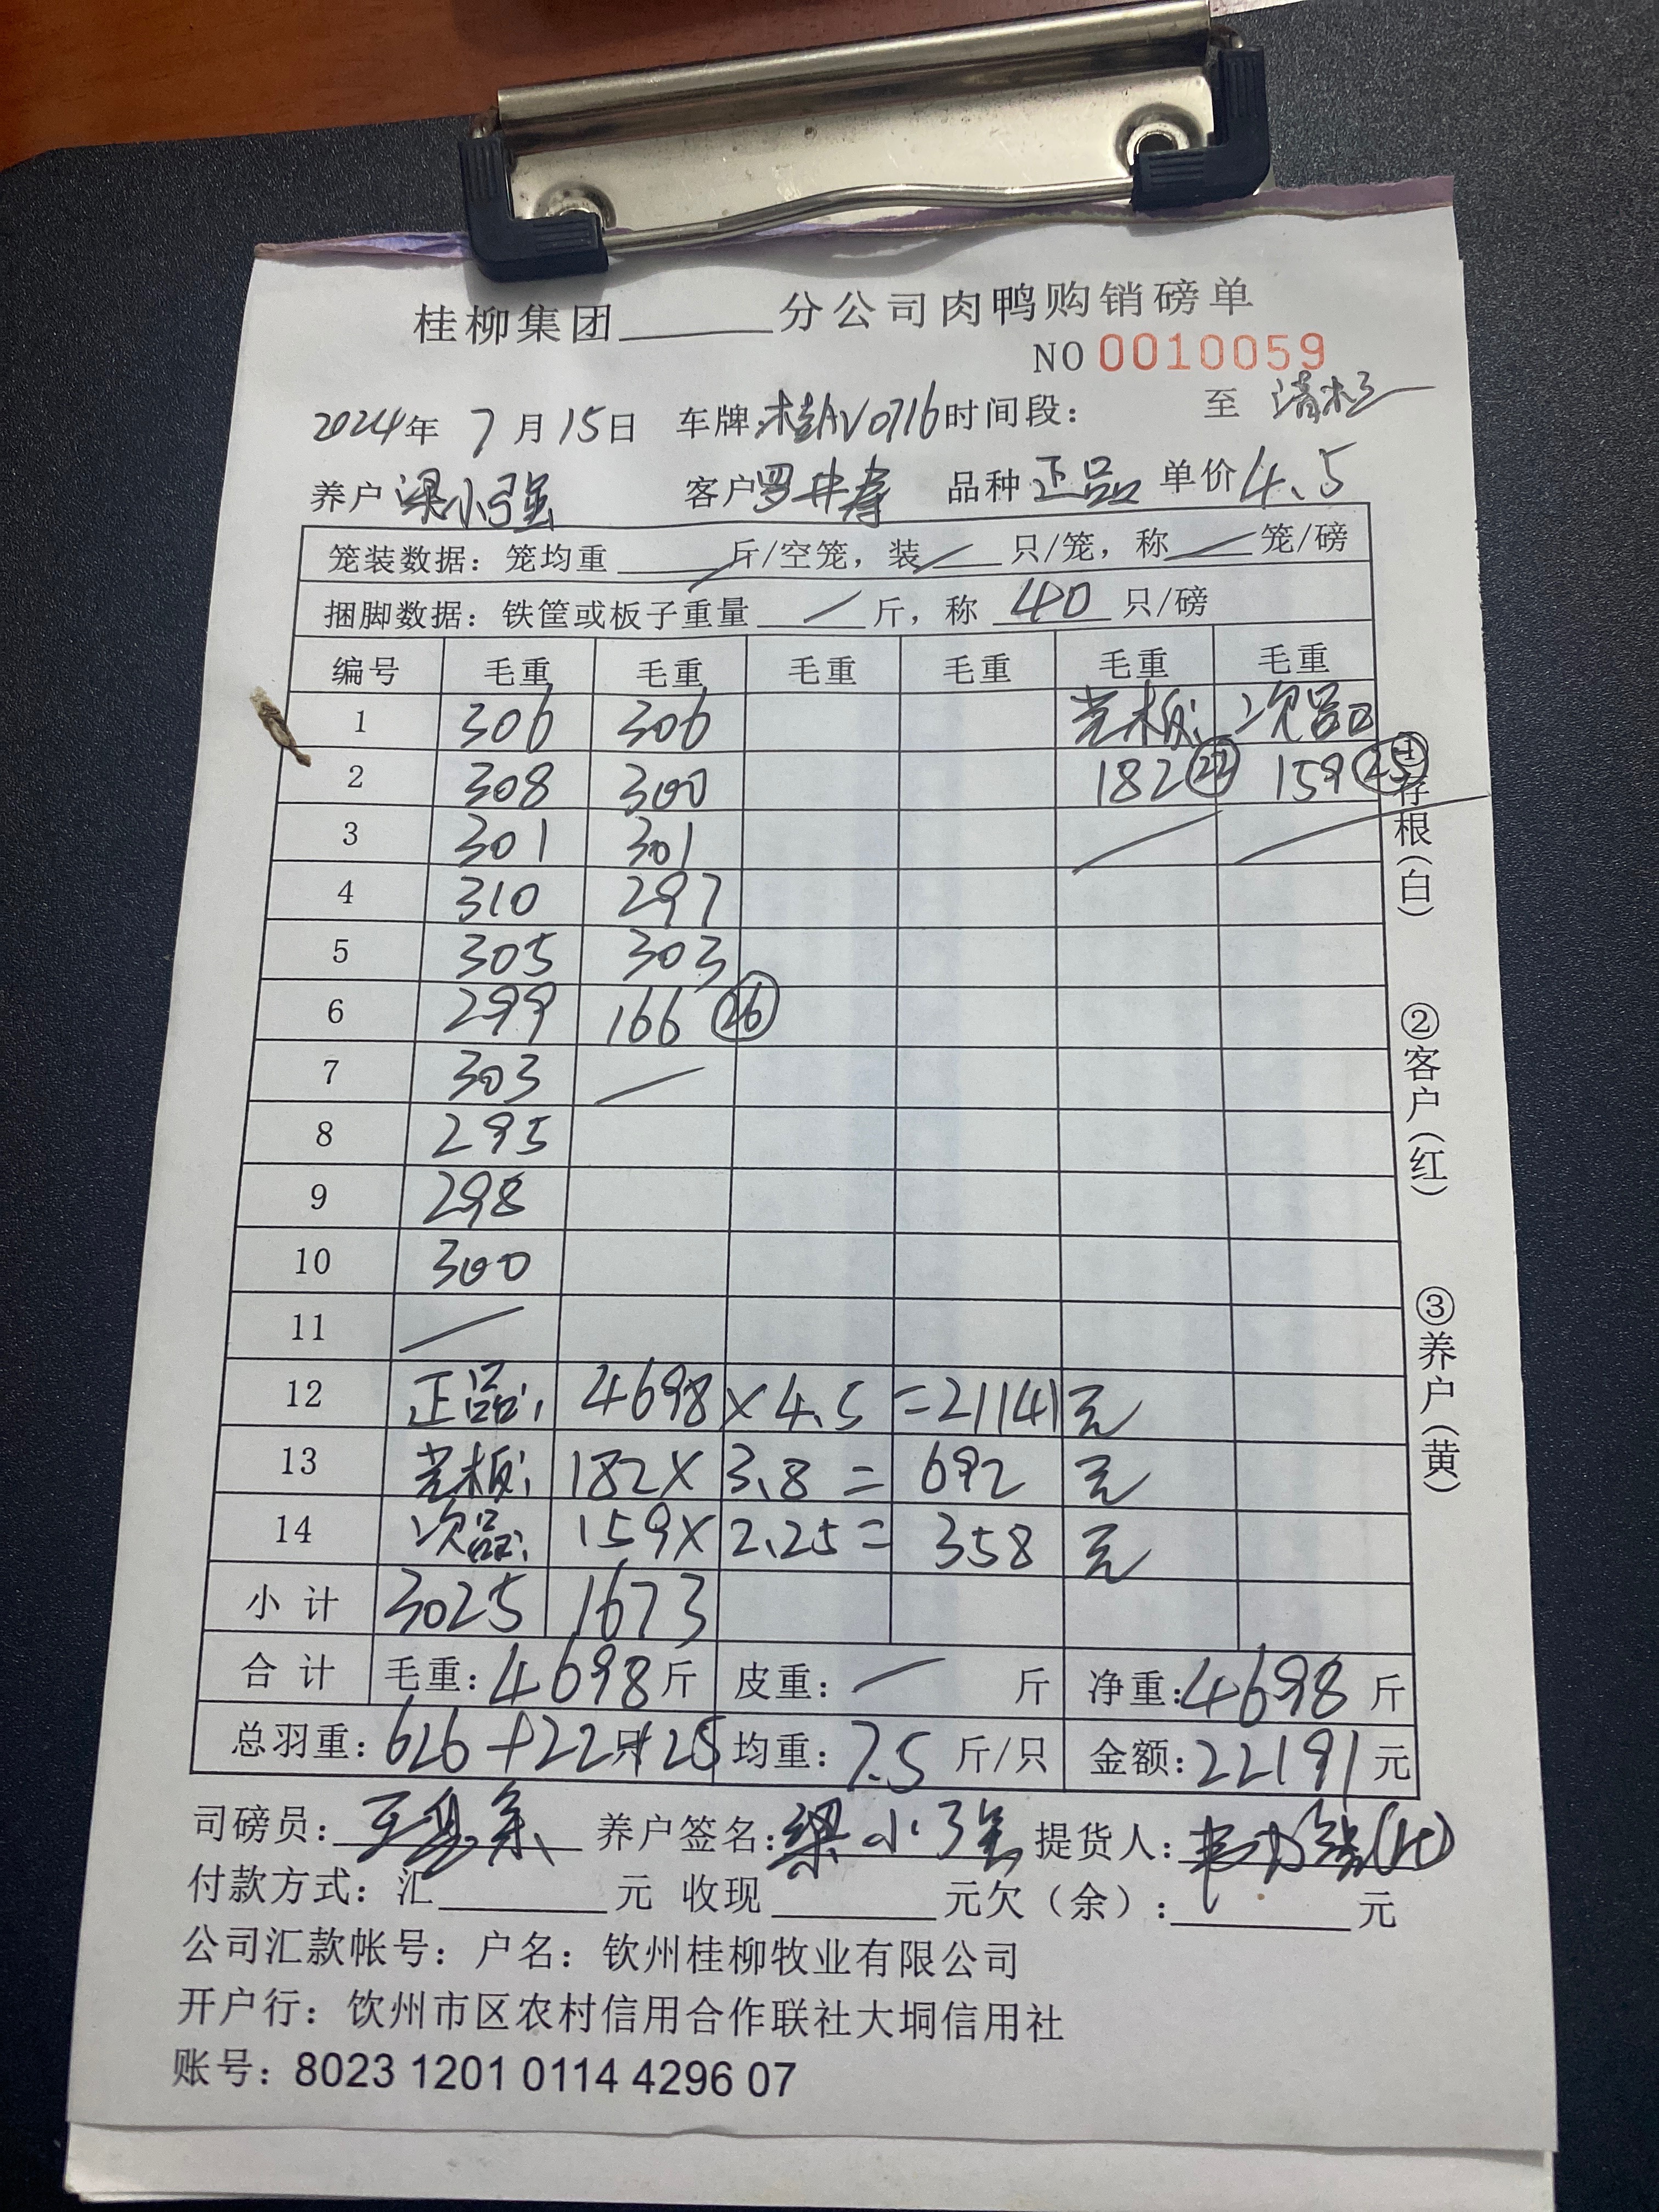 桂柳集团______分公司肉鸭购销磅单
NO 0010059
2024年 7月15日 车牌:桂AV0716 时间段: 至
养户 梁小强 客户 罗井寿 品种 正品 单价 4.5
笼装数据：笼均重 / 斤/空笼，装 / 只/笼，称 / 笼/磅
捆脚数据：铁筐或板子重量 / 斤，称 40 只/磅
编号 毛重 毛重 毛重 毛重 毛重 毛重
1 306 306 光板: 次品
2 308 300 182 ㉒ 159 ㉕
3 301 301 / /
4 310 297
5 305 303
6 299 166 ㉖
7 303 /
8 295
9 298
10 300
11 /
12 正品: 4698 × 4.5 = 21141元
13 光板: 182 × 3.8 = 692 元
14 次品: 159 × 2.25 = 358 元
小计 3025 1673
合计 毛重: 4698斤 皮重: / 斤 净重: 4698斤
总羽重: 626+22只+25 均重: 7.5 斤/只 金额: 22191元
司磅员: 养户签名: 梁小强 提货人:
付款方式：汇______元 收现______元欠（余）:______元
公司汇款帐号：户名：钦州桂柳牧业有限公司
开户行：钦州市区农村信用合作联社大垌信用社
账号：8023 1201 0114 4296 07
①存根(白)
②客户(红)
③养户(黄)